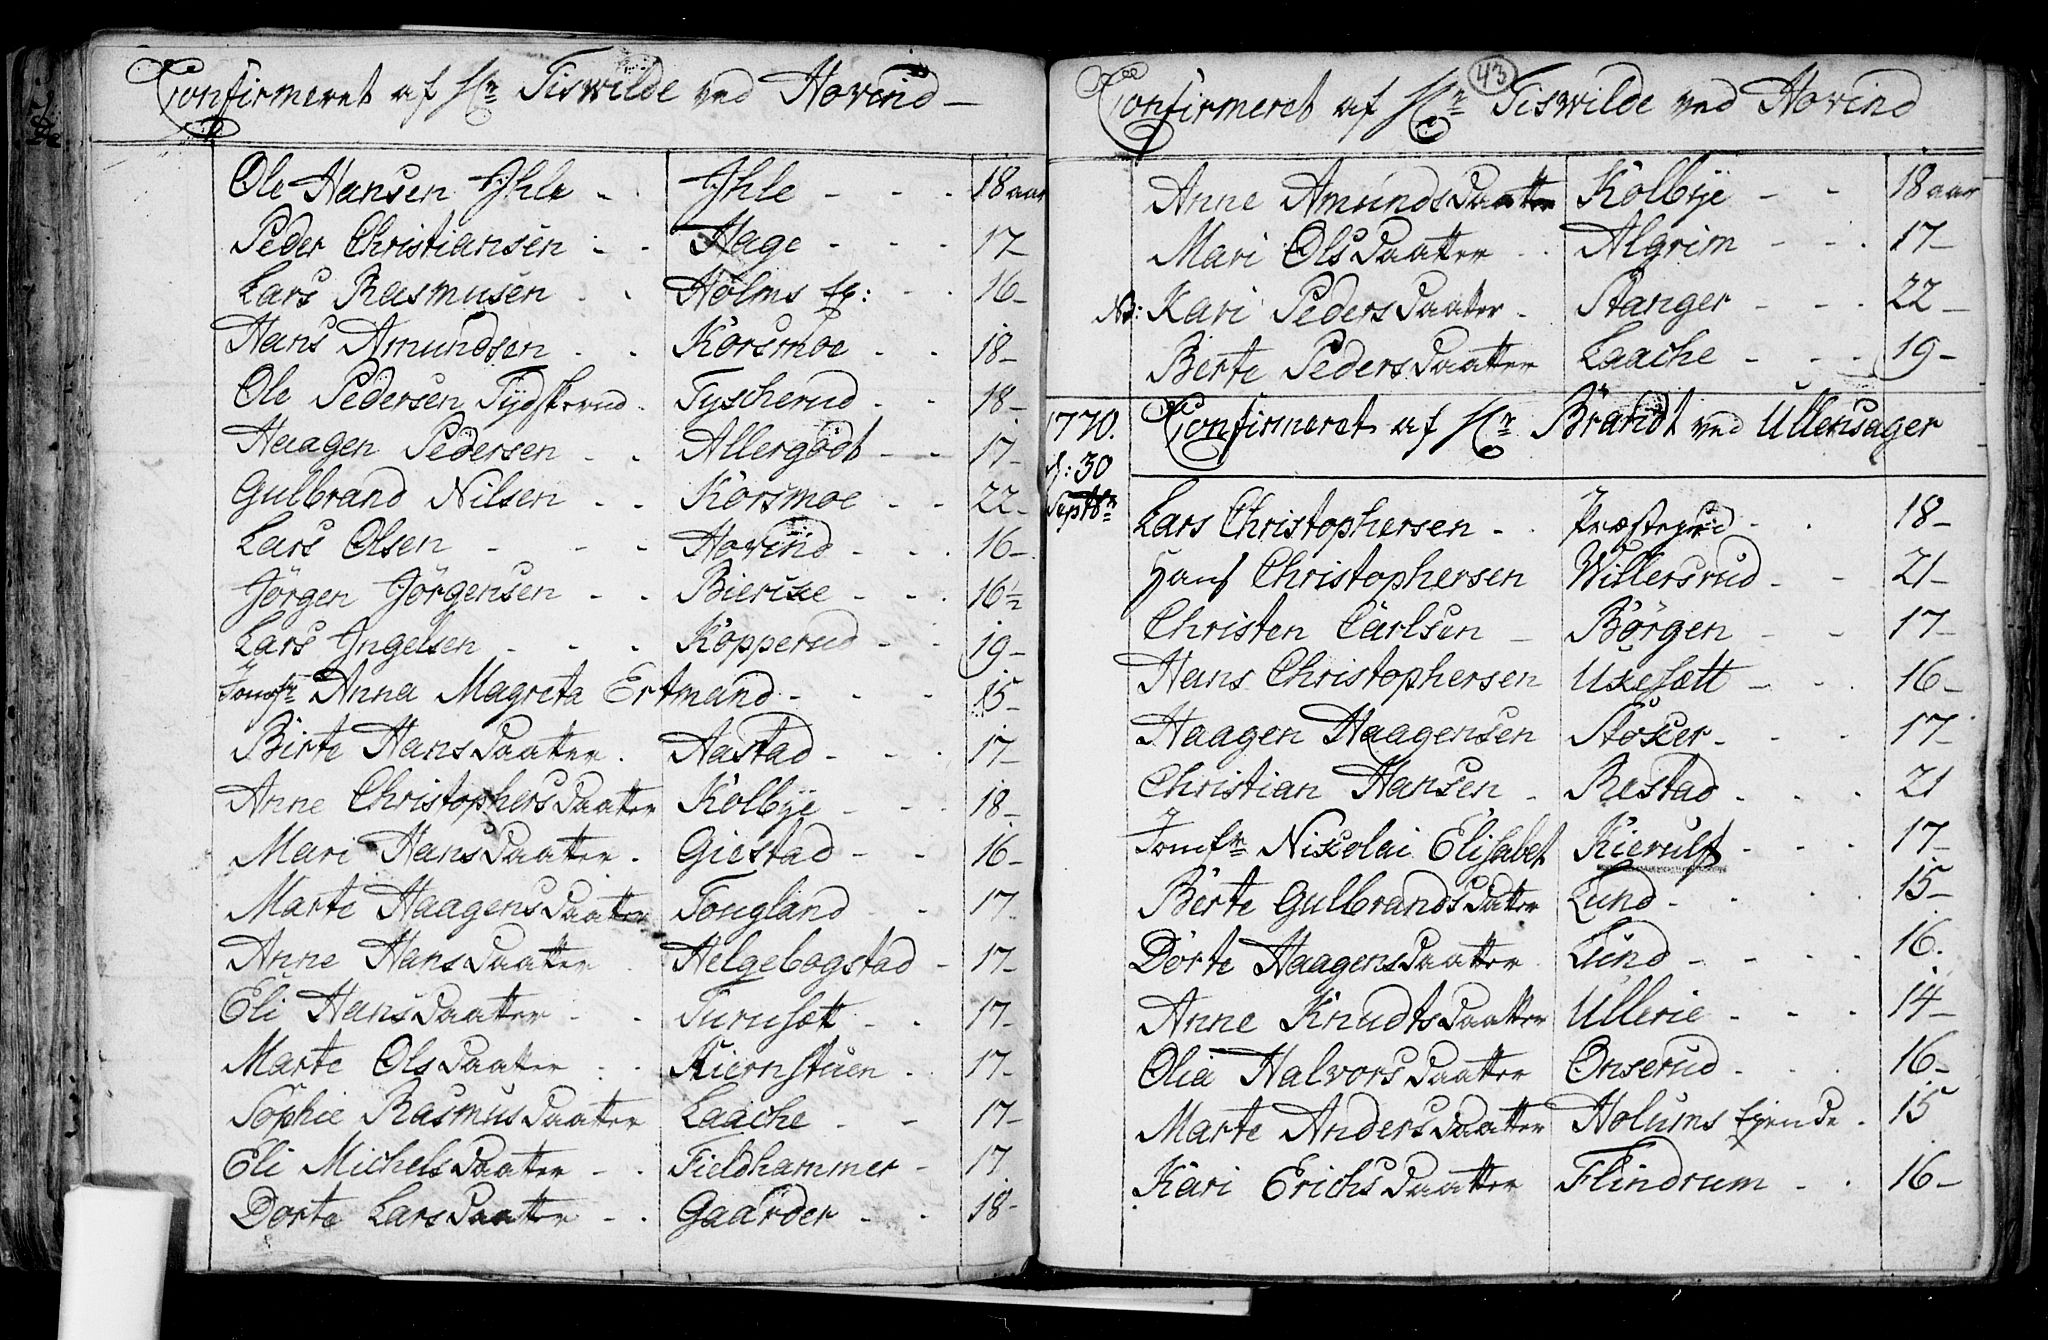 Confirmeret af Hr Tiswilde ved Hovind
Ole Hansen Jhle Jhle 18 aar
Peder Christiansen Hage 17
Lars Rasmusen Holms 16
Hans Amundsen Korsmoe 18
Ole Pedersen Tydskerud Tyscherud 18
Haagen Pedersen Allergodt 17
Gulbrand Nilsen Korsmoe 22
Lars Olsen Hovind 16
Jörgen Jörgensen Bierixe 16½
Lars Jngelsen Kopperud 19
Jomfr Anna Magreta Ertmand 15
Birte Hansdaatter Aastad 17
Anne Christophersdaatter Kolbye 18
Mari Hansdaatter Giestad 16
Marte Haagensdaatter Fougland 17
Anne Hansdaatter Helgebogstad 17
Eli Hansdaatter Furusæt 17
Marte Olsdaatter Kiernstuen 17
Sophie Rasmusdaatter Laache 17
Eli Michelsdaatter Fieldhammer 17
Dorte Larsdaatter Gaarder 18
43
Confirmeret af Hr Tiswilde ved Hovind
Anne Amundsdaatter Kolbye 18 aar
Mari Olsdaatter Algrim 17
NB: Kari Pedersdaatter Stanger 22
Berte Pedersdaatter Laache 19
1770. Confirmeret af Hr Brandt ved Ullensager
d: 30
Septbr
Lars Christophersen Præstegrd 18
Hans Christophersen Willersrud 21
Christen Carlsen Börgen 17
Hans Christophersen Uxesætt 16
Haagen Haagensen Stoxer 17
Christian Hansen Restad 21
Jomfr Nixolai Elisabet Kierulf 17
Berte Gulbrandsdatter Lund 15
Dorte Haagensdaatter Lund 16.
Anne Knudtsdaatter Ullerie 14
Olia Halvorsdaatter Onserud 16
Marte Andersdaatter Holums Ejende 15
Kari Erichsdaatter Flindrum 16